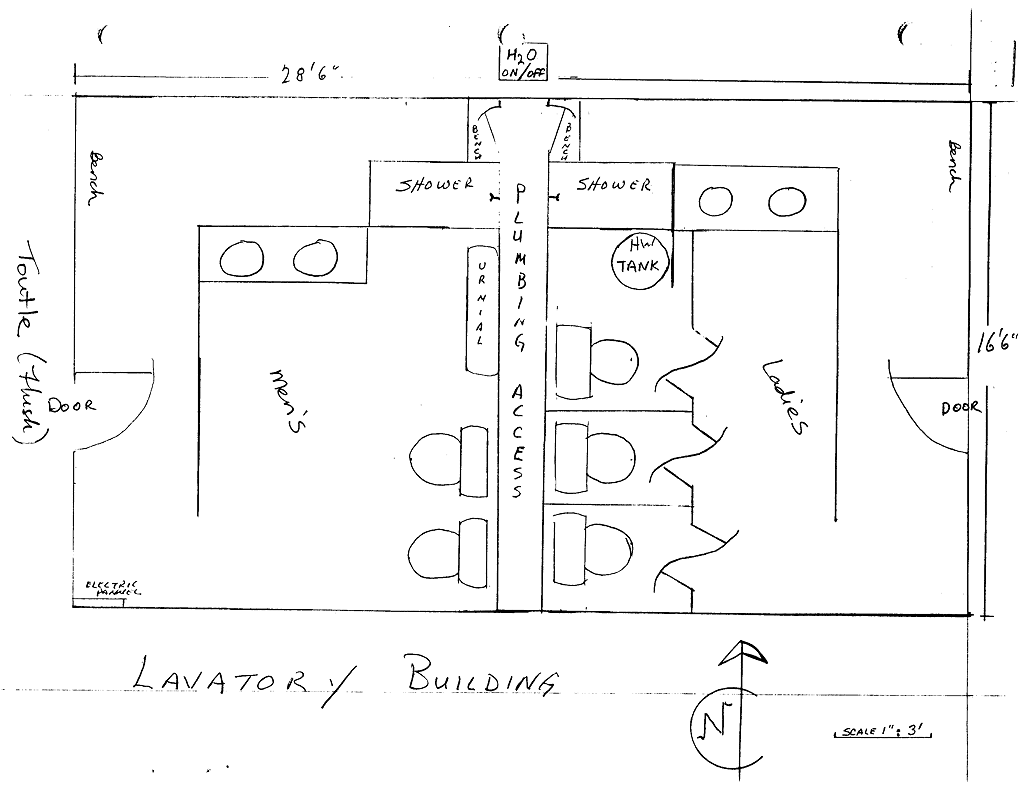 28'6"
H2O
ON/OFF
BENCH
BENCH
Bench
Bench
SHOWER
SHOWER
PLUMBING ACCESS
URNIAL
HW
TANK
Toutle (flush)
Men's
Ladies
16'6"
DOOR
DOOR
ELECTRIC
PANNEL
LAVATORY BUILDING
N
SCALE 1": 3'